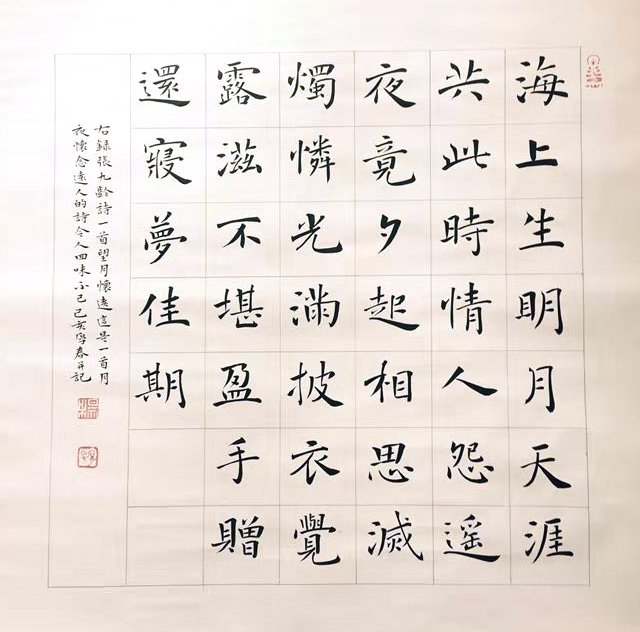 海上生明月天涯
共此時情人怨遥
夜竟夕起相思滅
燭憐光滿披衣覺
露滋不堪盈手贈
還寢夢佳期
右録張九齡詩一首望月懷遠這是一首月
夜懷念遠人的詩令人回味不已己亥學春并記